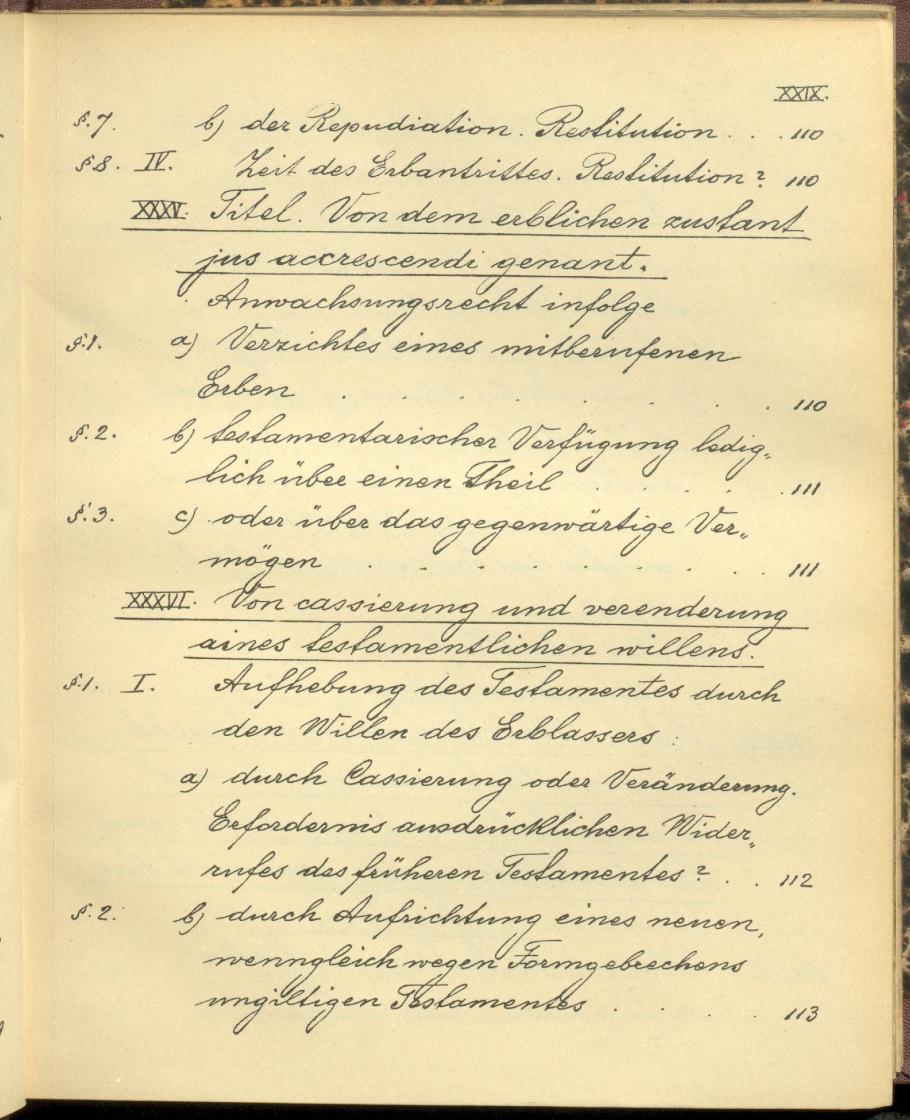 XXIX.
§.7. b) der Repudiation. Restitution . . . 110
§.8. IV. Zeit des Erbantrittes. Restitution? 110
XXXV. Titel. Von dem erblichen zustant
jus accrescendi genant.
Anwachsungsrecht infolge
§.1. a) Verzichtes eines mitberufenen
Erben . . . . . . . 110
§.2. b) testamentarischer Verfügung ledig„
lich über einen Theil . . . . . 111
§.3. c) oder über das gegenwärtige Ver„
mögen . . . . . . . . 111
XXXVI. Von cassierung und verenderung
aines testamentlichen willens.
§.1. I. Aufhebung des Testamentes durch
den Willen des Erblassers :
a) durch Cassierung oder Veränderung.
Erfordernis ausdrücklichen Wider„
rufes des früheren Testamentes? . . 112
§.2. b) durch Aufrichtung eines neuen,
wenngleich wegen Formgebrechens
ungiltigen Testamentes . . . . 113